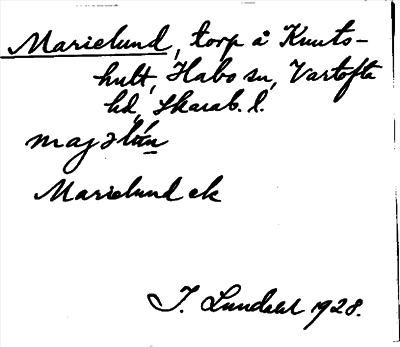 Marielund, torp å Knuts-
hult, Habo sn, Vartofta
hd, Skarab. l.
Marielund ek
I. Lundahl 1928.